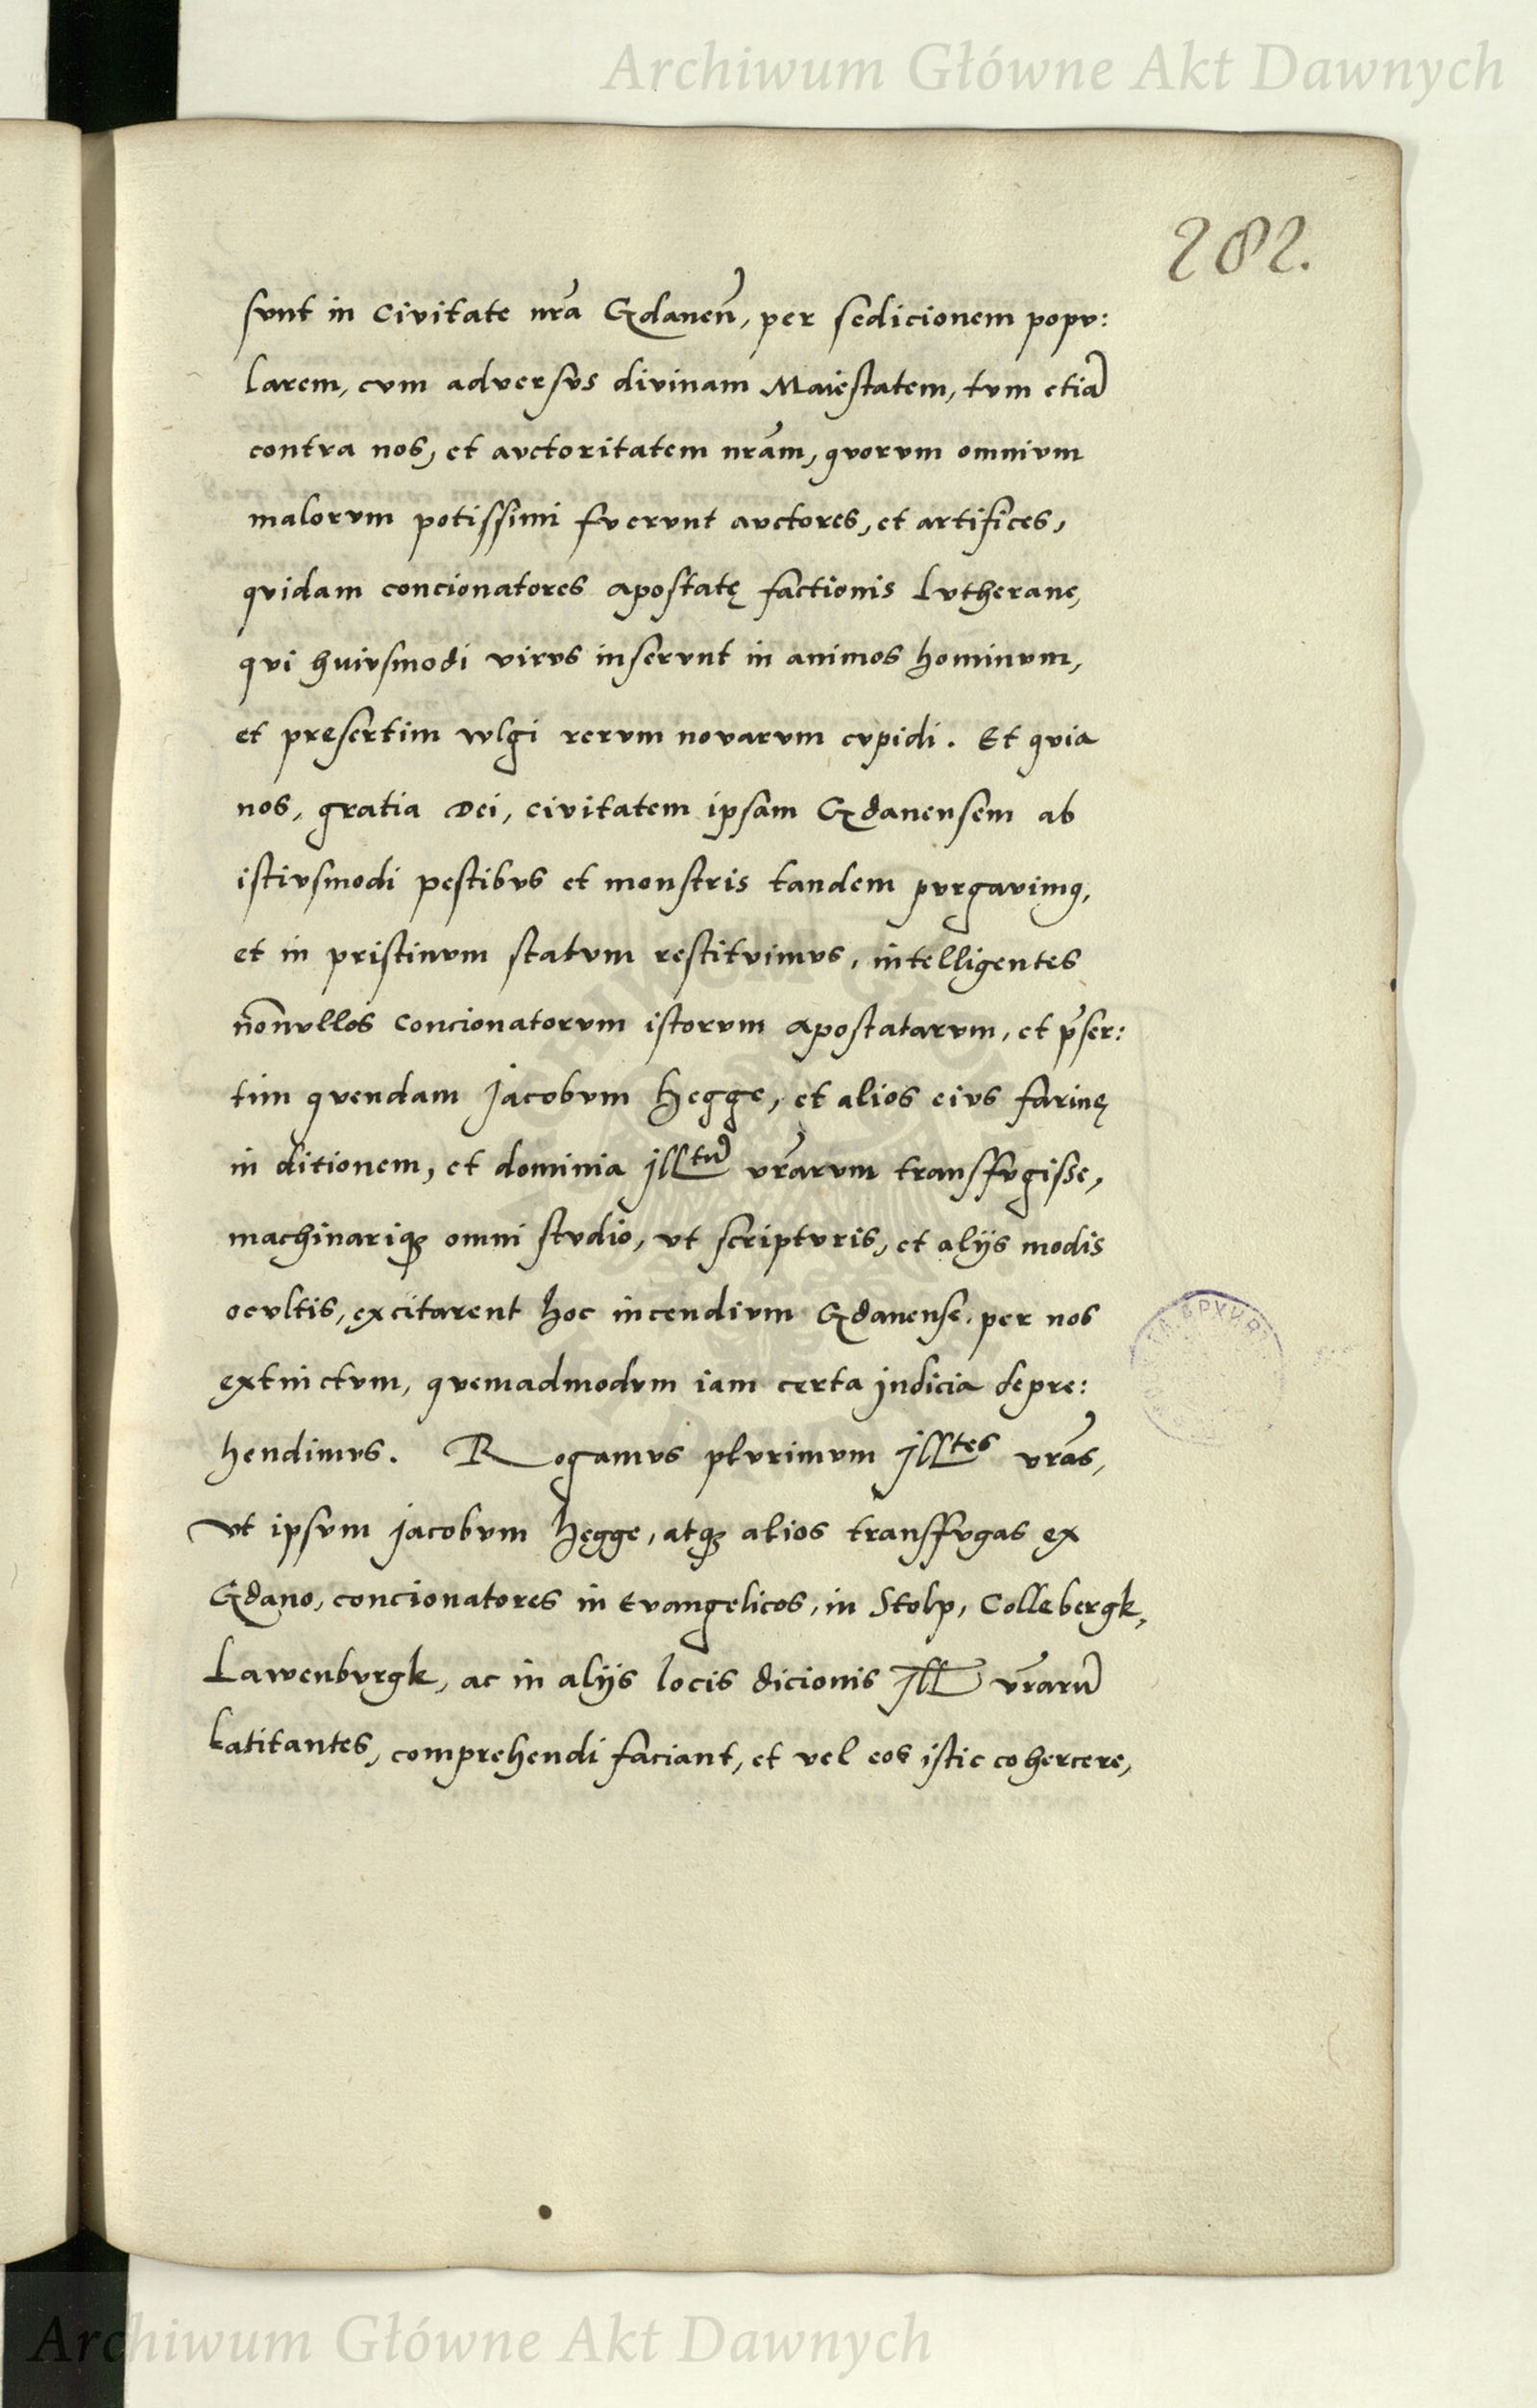 Archiwum Główne Akt Dawnych
282.
sunt in Civitate nrã Gdaneñ, per sedicionem popu:
larem, cum adversus divinam Maiestatem, tum etiã
contra nos, et auctoritatem nrãm, quorum omnium
malorum potissimi fuerunt auctores, et artifices,
quidam concionatores apostatę factionis Lutherane,
qui huiusmodi virus inserunt in animos hominum,
et presertim wlgi rerum novarum cupidi. Et quia
nos, gratia Dei, civitatem ipsam Gdanensem ab
istiusmodi pestibus et monstris tandem purgavimꝯ,
et in pristinum statum restituimus, intelligentes
nõnullos concionatorum istorum apostatarum, et p̃ser:
tim quendam Jacobum Hegge, et alios eius farinę
in ditionem, et dominia Jll̃tũ vrãrum transffugisse,
machinariqꝫ omni studio, ut scripturis, et alijs modis
ocultis, excitarent hoc incendium Gdanense, per nos
extinctum, quemadmodum iam certa indicia depre:
hendimus. Rogamus plurimum Jlltes vrãs,
ut ipsum Jacobum Hegge, atqꝫ alios transffugas ex
Gdano, concionatores in Evangelicos, in Stolp, Collebergk,
Lawenburgk, ac in alijs locis dicionis Jll̃ vrãrũ
latitantes, comprehendi faciant, et vel eos istic cohercere,
Archiwum Główne Akt Dawnych